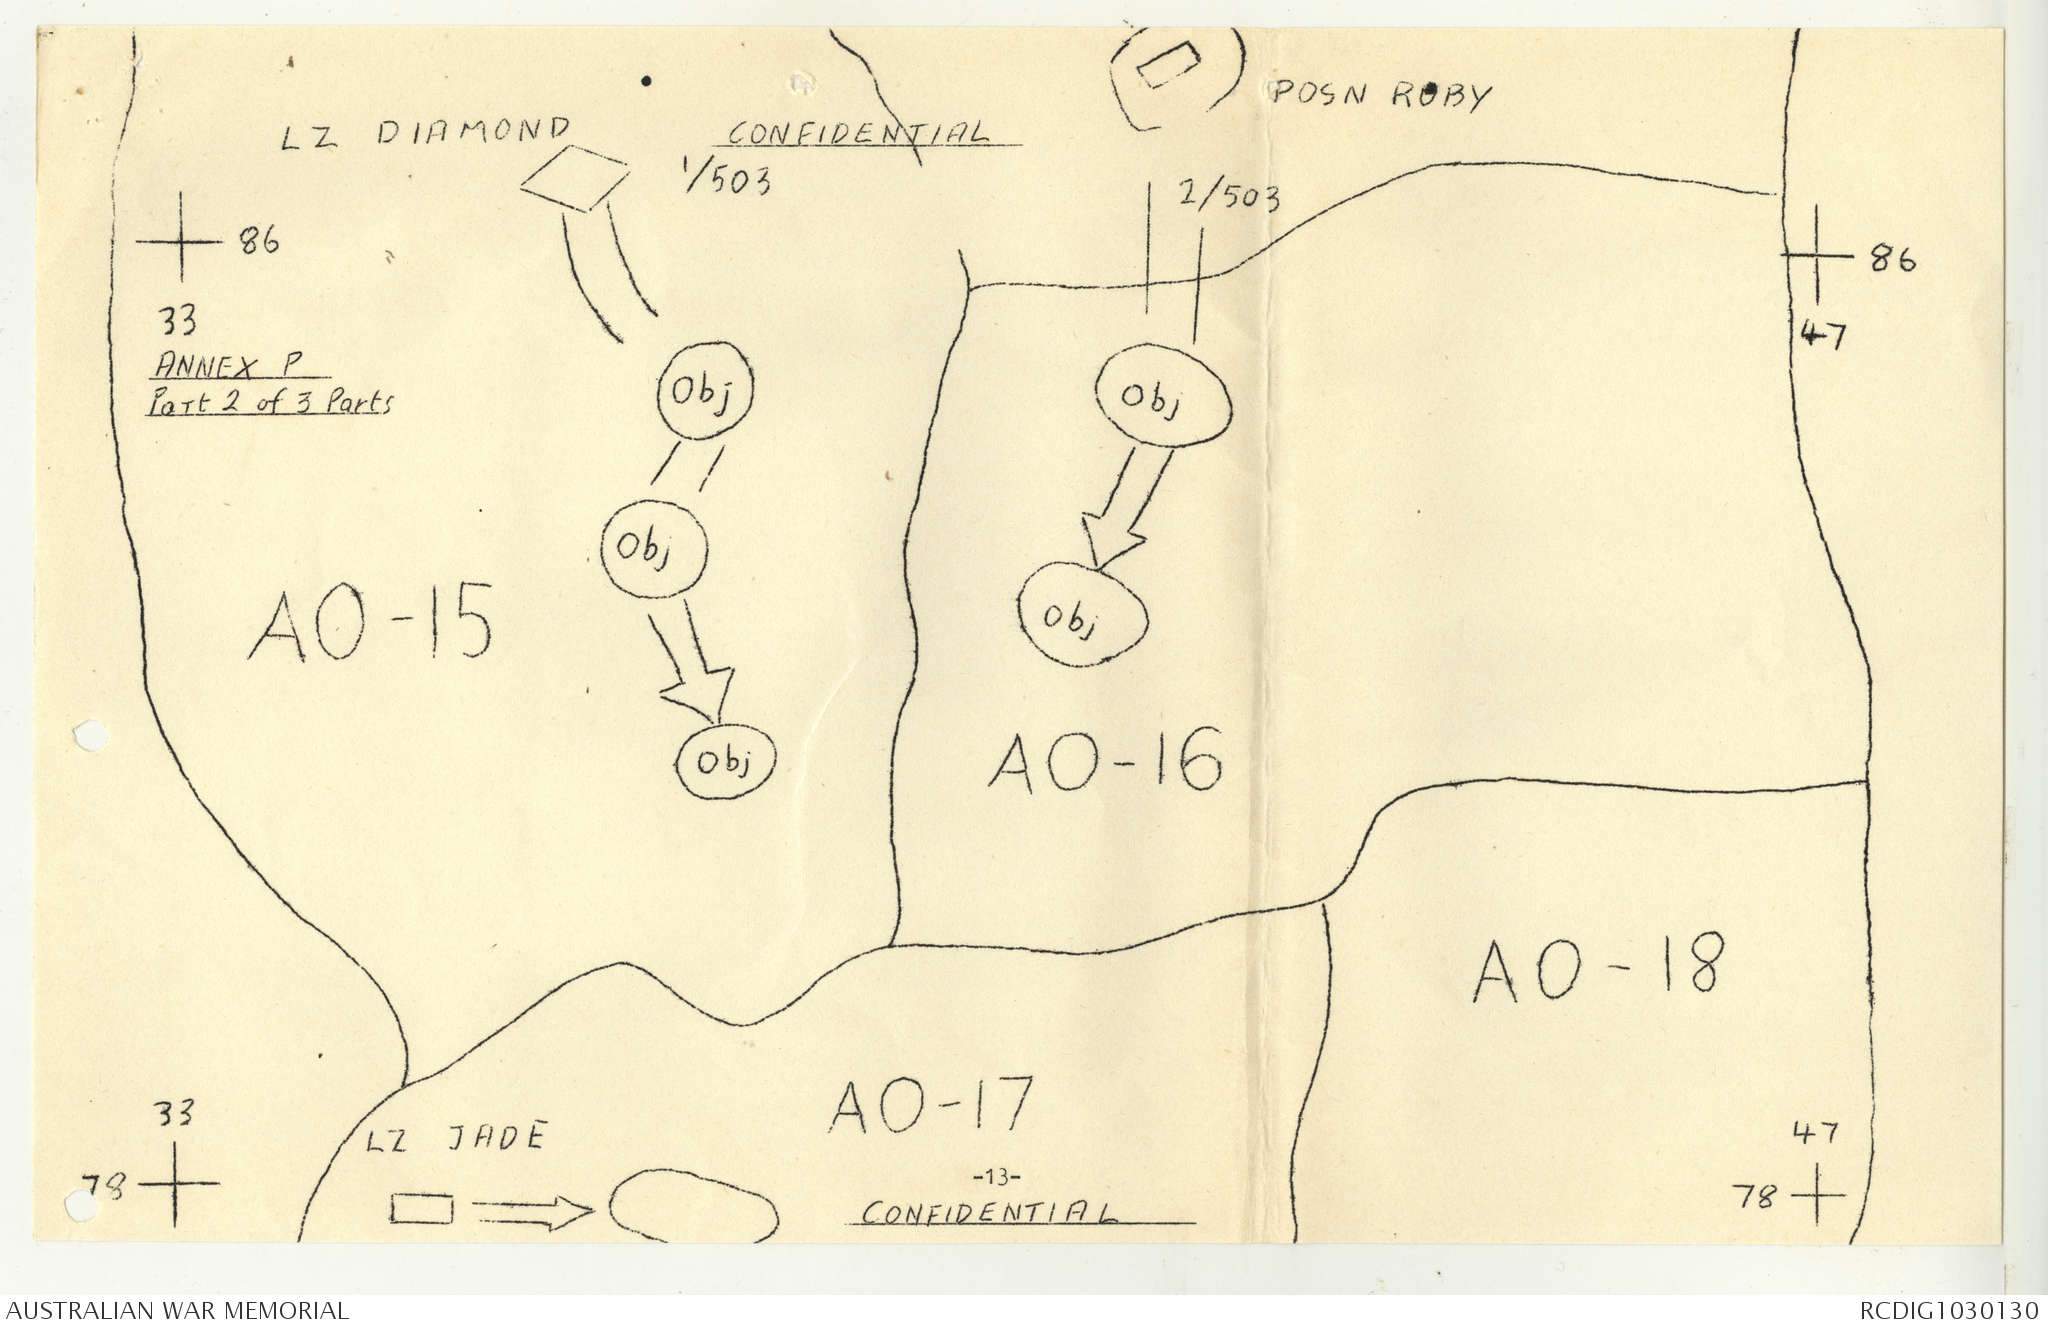 POSN RUBY
LZ DIAMOND
CONFIDENTIAL
1/503
2/503
86
86
33
47
ANNEX P
Part 2 of 3 Parts
Obj
Obj
Obj
Obj
Obj
AO-15
AO-16
AO-18
AO-17
33
47
LZ JADE
78
78
-13-
CONFIDENTIAL
AUSTRALIAN WAR MEMORIAL
RCDIG1030130